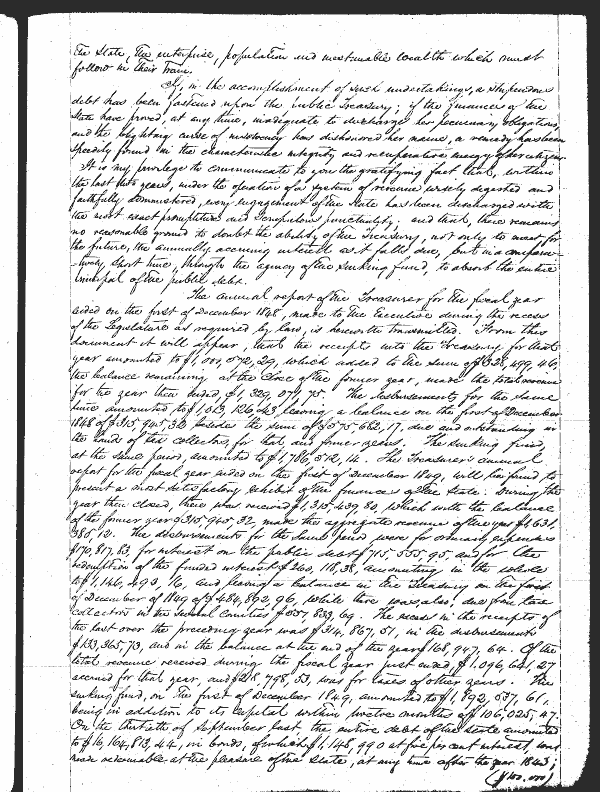 the State, the enterprise, population and measurable wealth which must
follow in their train.
If, in the accomplishment of such undertakings, a stupendous
debt has been fastened upon the public Treasury; if the finances of the
State have proved, at any time, inadequate to discharge her pecuniary obligations,
and the blighting curse of insolvency has dishonored her name, a remedy has been
speedily found in the characteristic integrity and recuperative energy of her citizens.
It is my privilege to communicate to you the gratifying fact that, within
the last two years, under the operation of a system of revenue wisely digested and
faithfully administered, every engagement of the State has been discharged with
the most exact promptitude and scrupulous punctuality: and that, there remains
no reasonable ground to doubt the ability of the Treasury, not only to meet for
the future, the annually accruing interest as it falls due, but in a compara-
tively short time, through the agency of the sinking fund, to absorb the entire
principal of the public debt.
The annual report of the Treasurer for the fiscal year
ended on the first of December 1848, made to the Executive during the recess
of the Legislature as required by law, is herewith transmitted. From this
document it will appear, that the receipts into the Treasury for that
year amounted to $1,001,072,29, which added to the sum of $328,499,46,
the balance remaining at the close of the former year, made the total revenue
for the year then ended, $1,329,071,75. The disbursements for the same
time amounted to $1,013,126,43 leaving a balance on the first of December
1848 of $315,945,32 besides the sum of $575,662,17, due and outstanding in
the hands of the collectors, for that, and former years. The sinking fund,
at the same period, amounted to $1,786,512,14. The Treasurer's annual
report for the fiscal year ended on the first of December 1849, will be found to
present a most satisfactory exhibit of the finances of the State. During the
year then closed, there was received $1,315,439,80, which with the balance
of the former year $315,945,32, made the aggregate revenue of the year $1,631,
385,12. The disbursements for the same period were for ordinary expenses
$170,817,83, for interest on the public debt $715,555,95, and for the
redemption of the funded interest $260,118,38, amounting in the whole
to $1,146,493,16, and leaving a balance in the Treasury on the first
of December of 1849 of $484,892,96, while there was also, due from tax
collectors in the several counties $537,833,69. The excess in the receipts of
the last over the preceding year was $314,867,51, in the disbursements
$133,365,73, and in the balance at the end of the year $168,947,64. Of the
total revenue received during the fiscal year just ended, $1,096,641,27
accrued for that year, and $218,798,53, was for taxes of other years. The
sinking fund, on the first of December 1849, amounted to $1,892,537,61,
being in addition to its capital within twelve months of $106,025,47.
On the thirtieth of September last, the entire debt of the state amounted
to $16,164,813,44, in bonds, of which $1,148,990 at five per cent interest, was
made redeemable at the pleasure of the State, at any time after the year 1843;
($100,000)